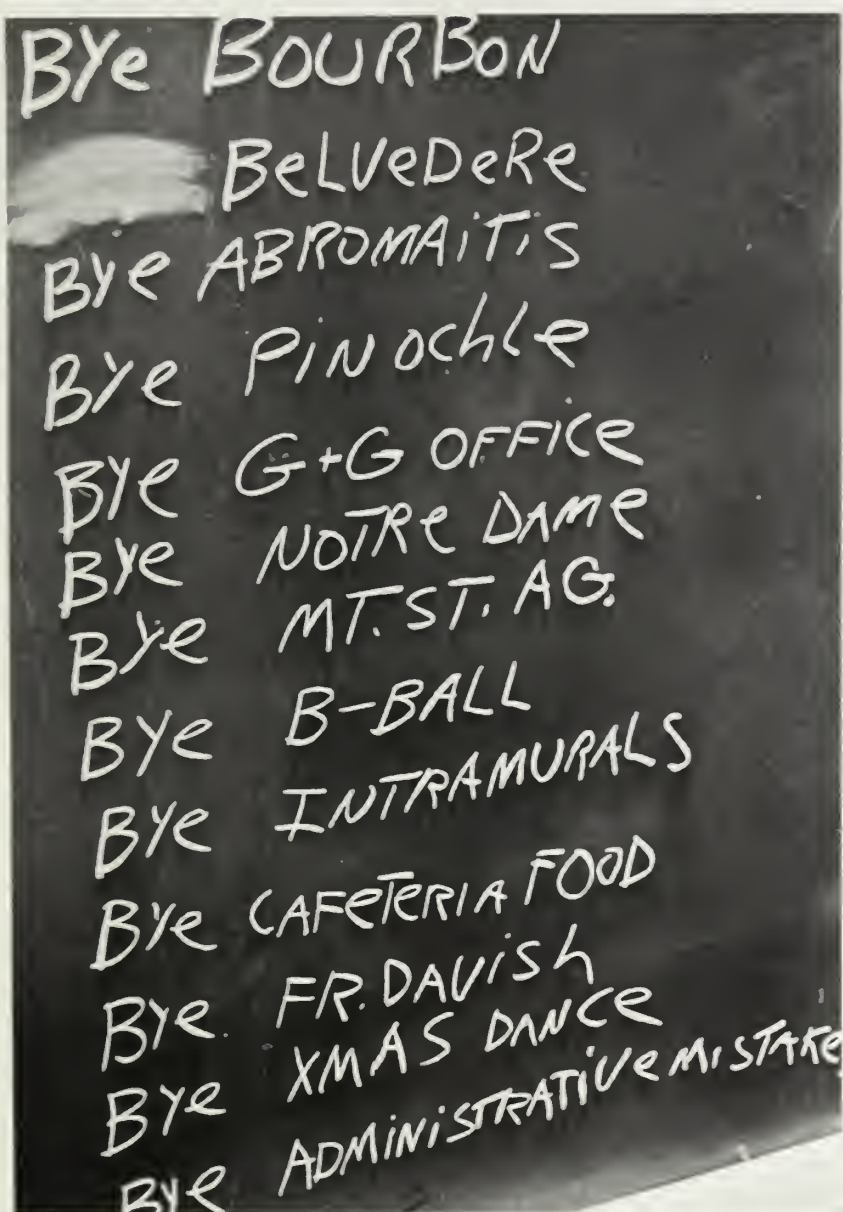 BYe BOURBON
BeLVeDeRe
BYe ABROMAiTiS
BYe PiNochle
BYe G+G OFFICe
BYe NOTRe DAMe
BYe MT. ST. AG.
BYe B-BALL
BYe INTRAMURALS
BYe CAFeTeRIA FOOD
BYe FR. DAViSh
BYe XMAS DANCe
BYe ADMiNiSTRATiVe MiSTAKe